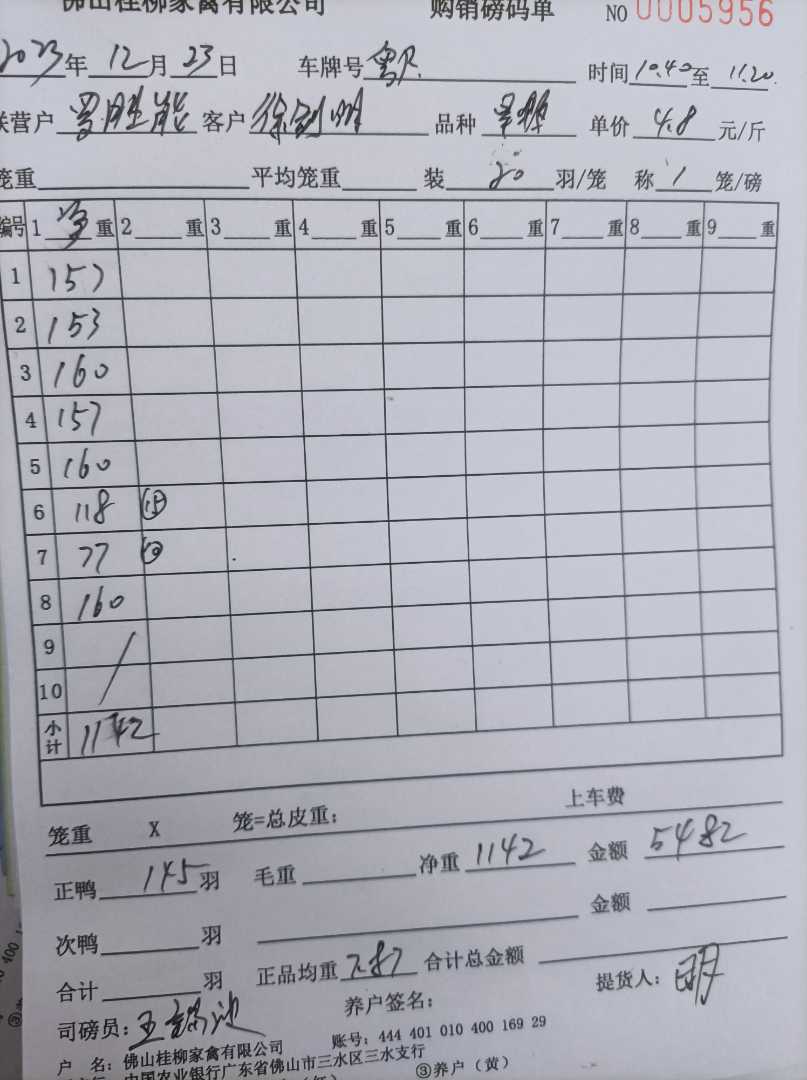 佛山桂柳家禽有限公司 购销磅码单 NO 0005956
2023年12月23日 车牌号 时间10.40至11.20
联营户 罗胜能 客户 徐剑明 品种 单价4.8元/斤
笼重 平均笼重 装20羽/笼 称1笼/磅
编号 1净重 2重 3重 4重 5重 6重 7重 8重 9重
1 157
2 153
3 160
4 157
5 160
6 118 ⑮
7 77 ⑩
8 160
9 /
10
小计 1142
笼重 X 笼=总皮重: 上车费
正鸭145羽 毛重 净重1142 金额5482
次鸭 羽 金额
合计 羽 正品均重7.87 合计总金额
司磅员: 养户签名: 提货人: 明
户 名: 佛山桂柳家禽有限公司 账号: 444 401 010 400 169 29
中国农业银行广东省佛山市三水区三水支行
③养户(黄)